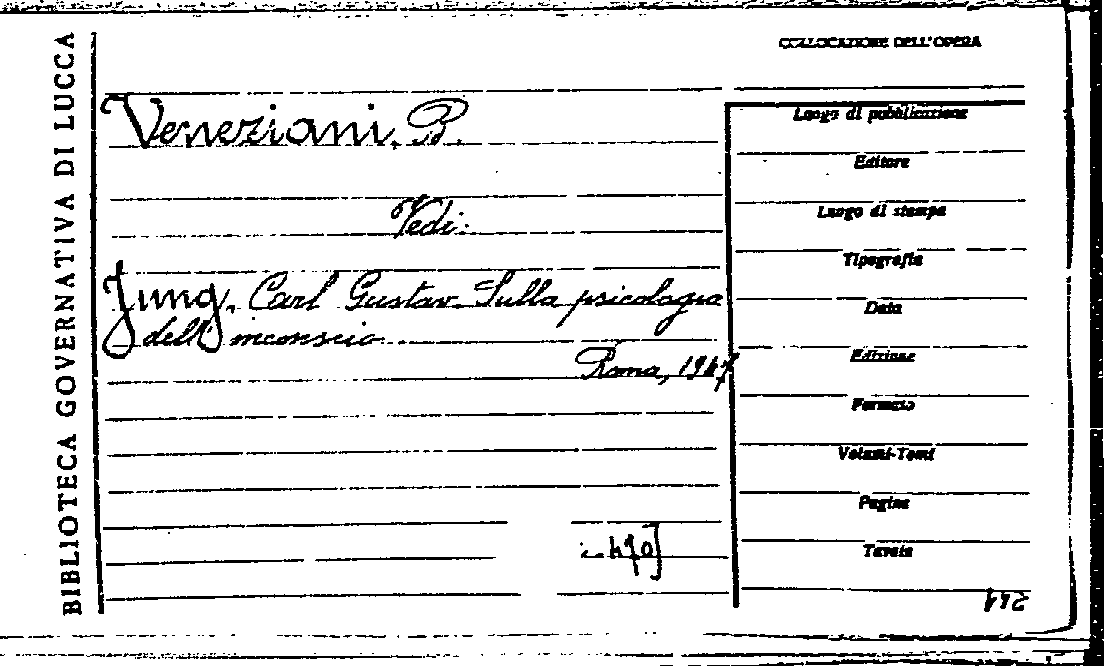 BIBLIOTECA GOVERNATIVA DI LUCCA
COLLOCAZIONE DELL'OPERA
Veneziani, B.
Vedi:
Jung, Carl Gustav - Sulla psicologia
dell'inconscio
Roma, 1947
Luogo di pubblicazione
Editore
Luogo di stampa
Tipografia
Data
Edizione
Formato
Volumi-Tomi
Pagine
Tavole